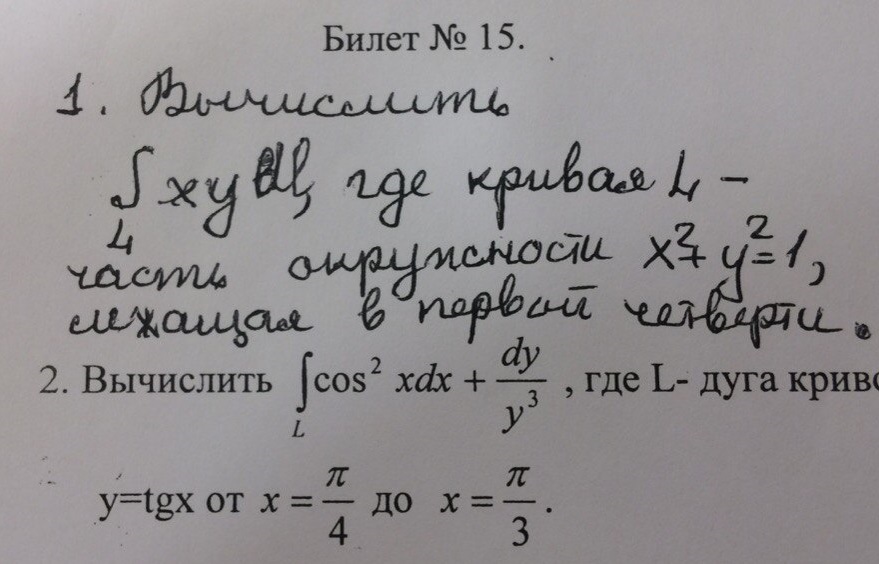 Билет № 15.
1. Вычислить
∫ xy dl, где кривая L –
L
часть окружности x²+y²=1,
лежащая в первой четверти.
2. Вычислить ∫ cos² xdx + dy/y³ , где L- дуга криво
L
y=tgx от x = π/4 до x = π/3 .